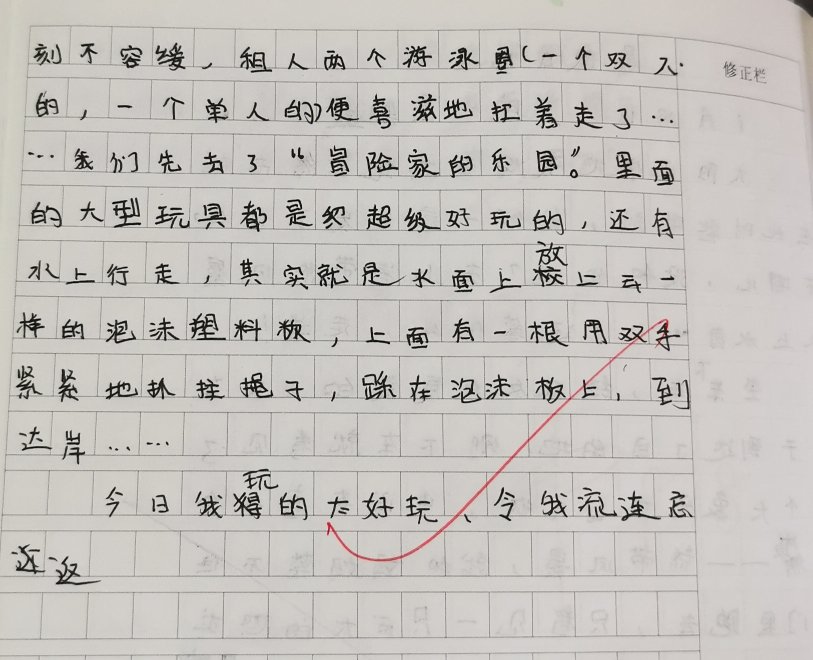 刻不容缓，租人两个游泳圈(一个双人
修正栏
的，一个单人的)便喜滋地扛着走了…
…我们先去了“冒险家的乐园”。里面
的大型玩具都是约超级好玩的，还有
放
水上行走，其实就是水面上上云一
样的泡沫塑料板，上面有一根用双手
紧紧地抓挂绳子，踩在泡沫板上，到
达岸……
玩
今日我得的太好玩、令我流连忘
返